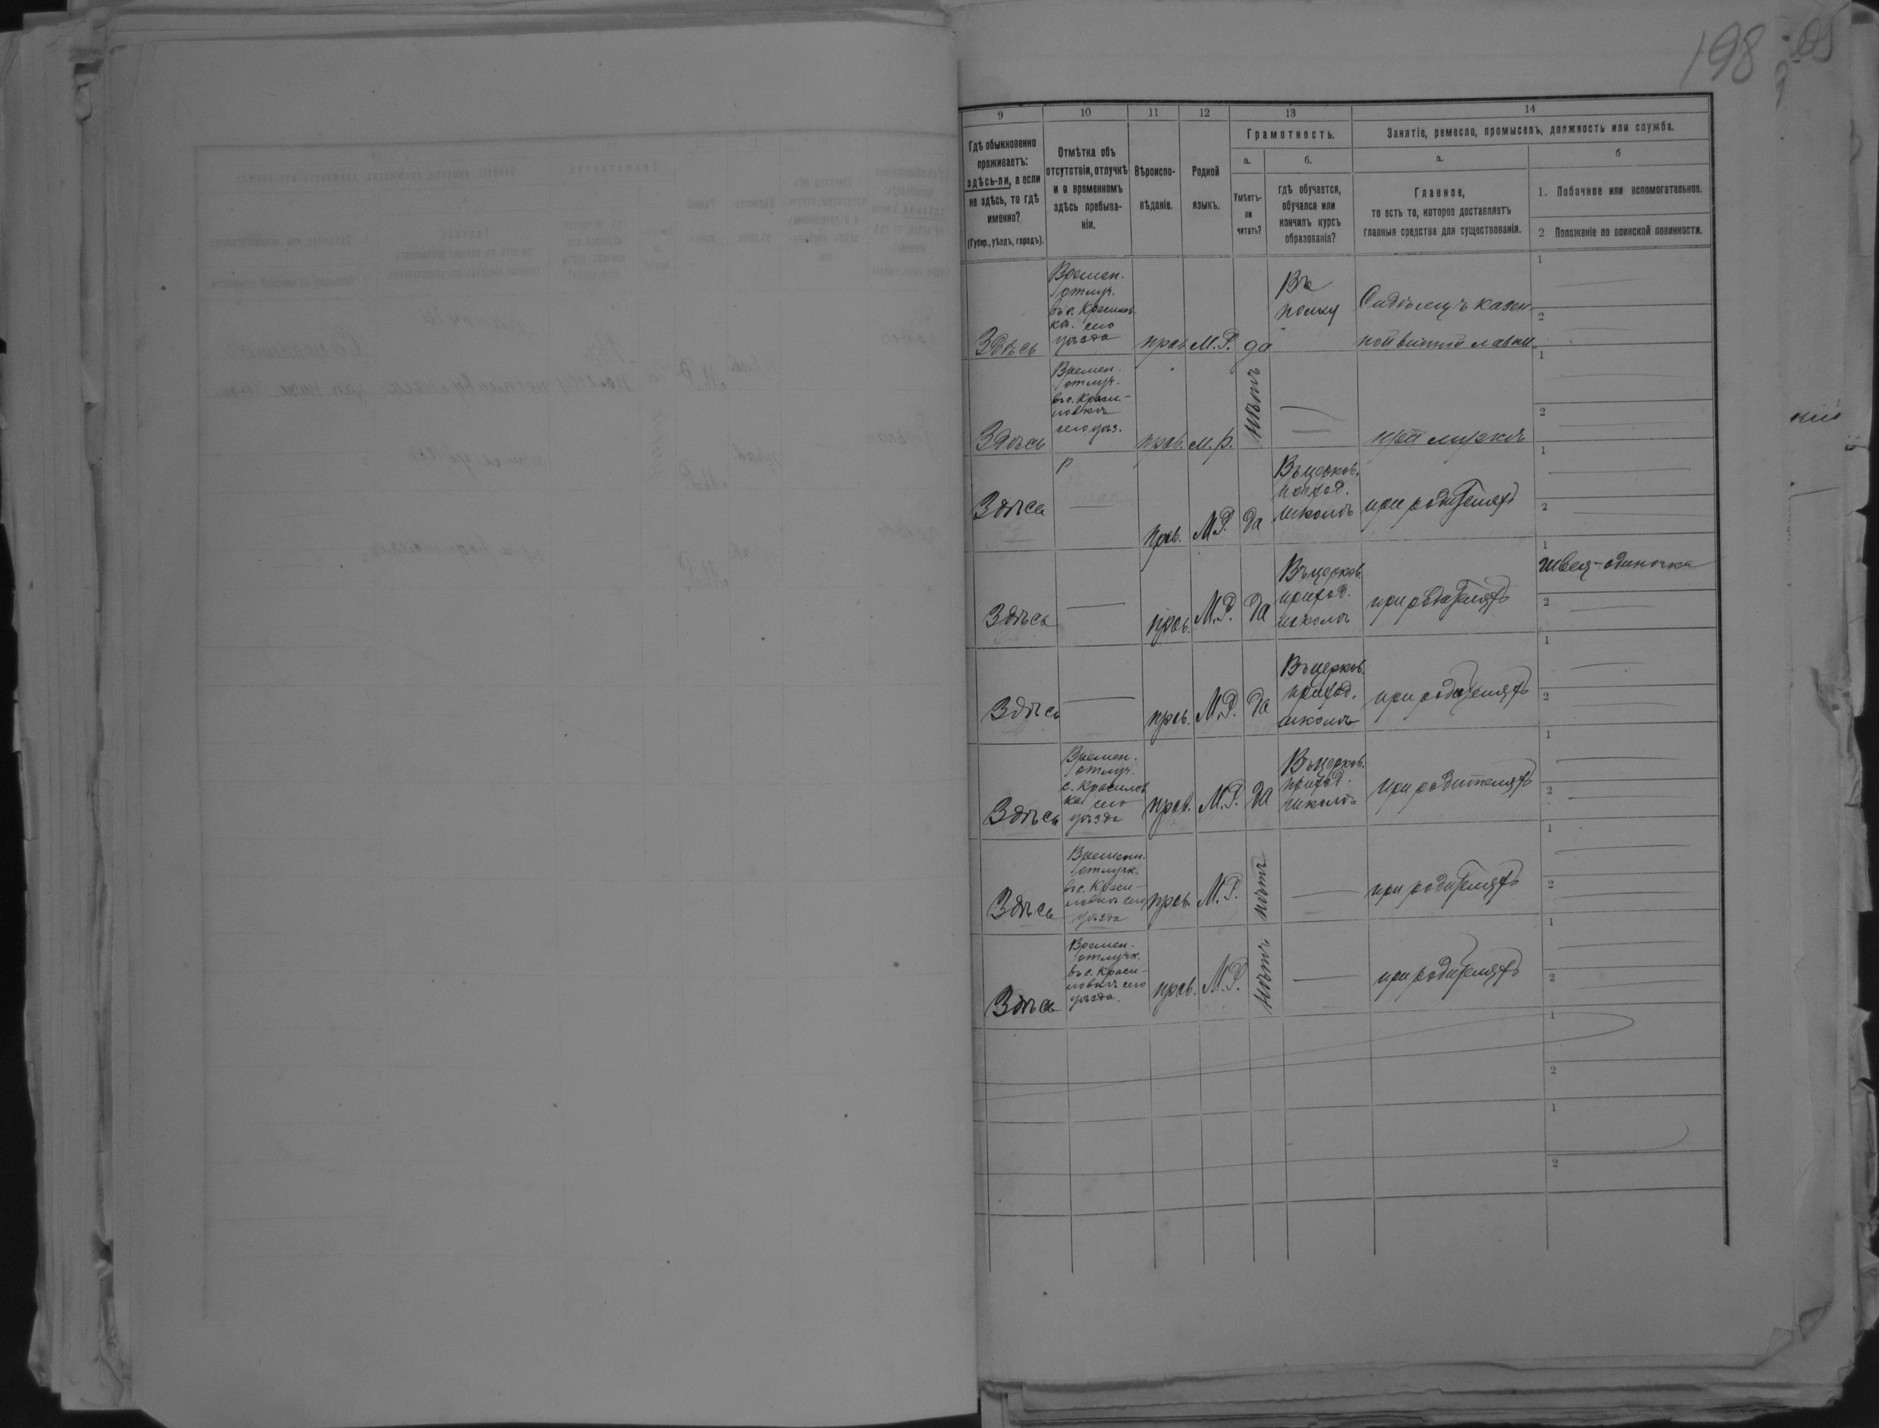 198
9 10 11 12 13 14
Грамотность.
Занятіе, ремесло, промыселъ, должность или служба.
Гдѣ обыкновенно
проживаетъ:
здѣсь-ли, а если
не здѣсь, то гдѣ
именно?
(Губер., уѣздъ, городъ).
Отмѣтка объ
отсутствіи, отлучкѣ
и о временномъ
здѣсь пребыва-
ніи.
Вѣроиспо-
вѣданіе.
Родной
языкъ.
а.
Умѣетъ-
ли
читать?
б.
гдѣ обучается,
обучался или
кончилъ курсъ
образованія?
а.
Главное,
то есть то, которое доставляетъ
главныя средства для существованія.
б
1. Побочное или вспомогательное.
2 Положеніе по воинской повинности.
Здѣсь
Времен.
отлуч.
въ с. Красилов
ка. сего
уѣзда
прав.
М.Р.
да
Въ
полку
Сидѣлецъ казен
ной винной лавки
1
2
Здѣсь
Времен.
отлуч.
въ с. Краси-
ловкѣ
сего уѣз.
прав.
М.Р.
нѣтъ
при мужѣ
1
2
Здѣсь
прав.
М.Р.
да
Въ церков.
приход.
школѣ
при родителяхъ
1
2
Здѣсь
прав.
М.Р.
да
Въ церков.
приход.
школѣ
при родителяхъ
1
швея-одиночка
2
Здѣсь
прав.
М.Р.
да
Въ церков.
приход.
школѣ
при родителяхъ
1
2
Здѣсь
Времен.
отлуч.
с. Красилов
ка сего
уѣзда
прав.
М.Р.
да
Въ церков.
приход.
школѣ
при родителяхъ
1
2
Здѣсь
Времени.
отлучк.
въ с. Краси-
ловкѣ сего
уѣзда
прав.
М.Р.
нѣтъ
при родителяхъ
1
2
Здѣсь
Времен.
отлучк.
въ с. Краси-
ловкѣ сего
уѣзда.
прав.
М.Р.
нѣтъ
при родителяхъ
1
2
1
2
1
2